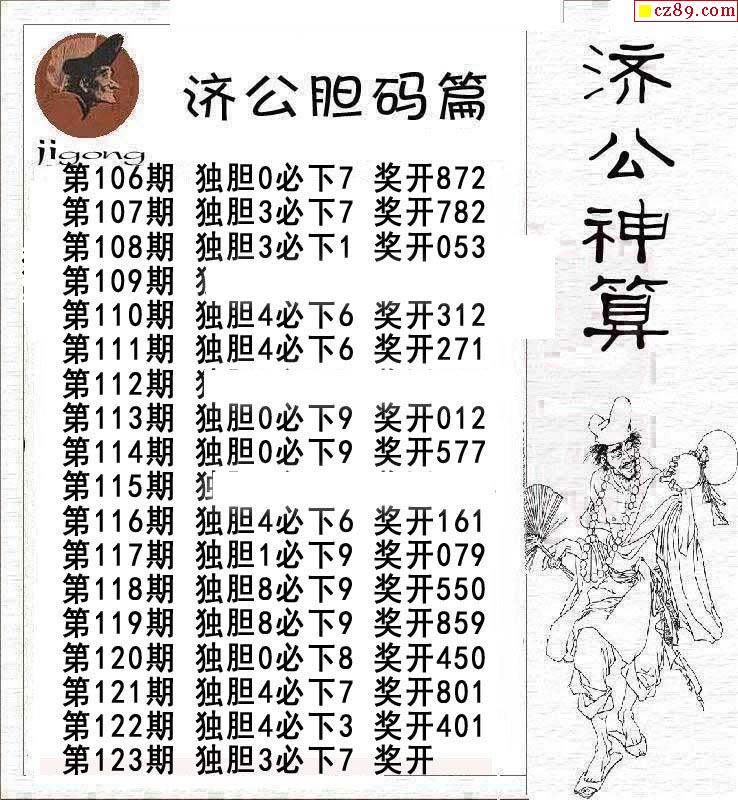 cz89.com
济公胆码篇
济公神算
jigong
第106期 独胆0必下7 奖开872
第107期 独胆3必下7 奖开782
第108期 独胆3必下1 奖开053
第109期
第110期 独胆4必下6 奖开312
第111期 独胆4必下6 奖开271
第112期
第113期 独胆0必下9 奖开012
第114期 独胆0必下9 奖开577
第115期
第116期 独胆4必下6 奖开161
第117期 独胆1必下9 奖开079
第118期 独胆8必下9 奖开550
第119期 独胆8必下9 奖开859
第120期 独胆0必下8 奖开450
第121期 独胆4必下7 奖开801
第122期 独胆4必下3 奖开401
第123期 独胆3必下7 奖开